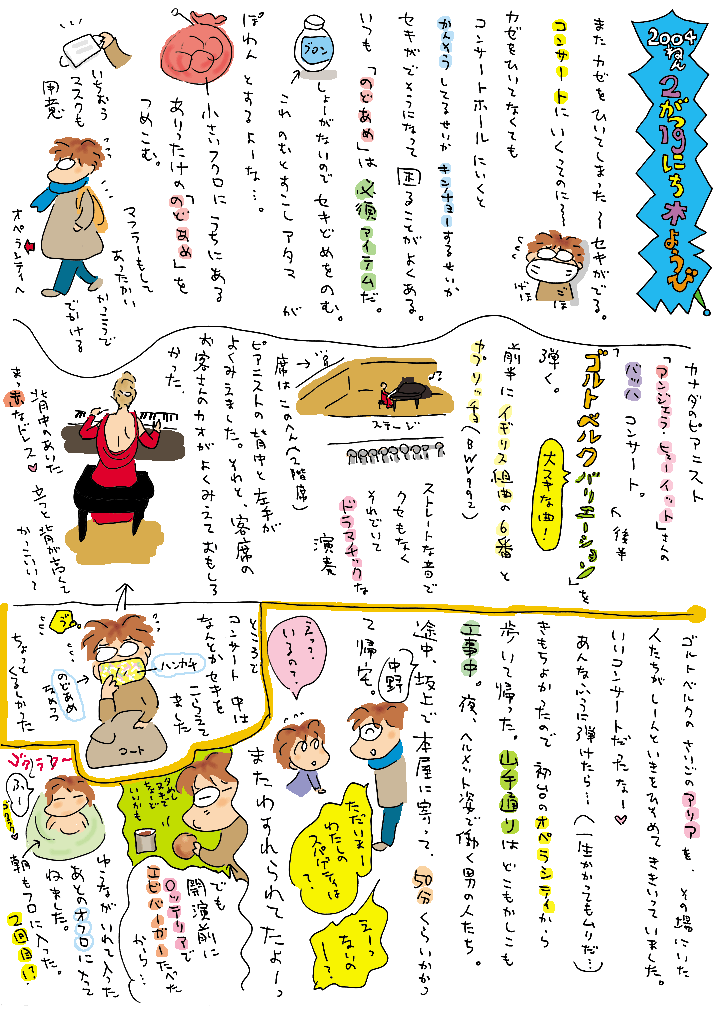 2004ねん
2がつ19にち木ようび
またカゼをひいてしまった〜セキがでる。
コンサートにいくってのに〜〜
ごほ
げほ
カゼをひいてなくても
コンサートホールにいくと
かんそうしてるせいかキンチョーするせいか
セキがでそうになって困ることがよくある。
いつも「のどあめ」は必須アイテムだ。
ブロン
しょーがないのでセキどめをのむ。
これのむとすこしアタマが
ぽわんとするよーな…。
小さいフクロにうちにある
ありったけの「のどあめ」を
つめこむ。
いちおう
マスクも
用意
マフラーもして
あったかい
かっこうで
でかける
オペラシティへ
カナダのピアニスト
「アンジェラ・ヒューイット」さんの
「バッハ」コンサート。
後半
ゴルトベルクバリエーション」を
弾く。
大スキな曲!
前半にイギリス組曲の6番と
カプリッチョ(BWV992)
ステージ
席はこのへん(2階席)
ストレートな音で
クセもなく
それでいて
ドラマチックな
演奏
ピアニストの背中と左手が
よくみえました。それと、客席の
お客さんのカオがよくみえておもしろ
かった。
背中のあいた
まっ赤なドレス♥
立つと背が高くて
かっこいい〜
ゴルトベルクのさいごのアリアを、その場にいた
人たちがしーんといきをひそめてききいっていました。
いいコンサートだったなー♥
あんなふうに弾けたら…(一生かかってもムリだ…)
きもちよかったので初台のオペラシティから
歩いて帰った。山手通りはどこもかしこも
工事中。夜、ヘルメット姿で働く男の人たち。
途中、坂上で本屋に寄って、50分くらいかかっ
て帰宅。
中野
ところで
コンサート中は
なんとかセキを
こらえて
ました
ハンカチ
のどあめ
なめつつ
コート
ちょっと
くるしかった
えっ?
いるの?
ただいまー
わたしの
スパゲティは
?
えーっ
ないの
ー?
またわすれられてたよーっ
夕めし
ヌキで
でも
開演前に
ロッテリアで
エビバーガーたべた
から…
ゴクラク〜
ふー
ゴクラク
ゆうながいれて入った
あとのオフロに入って
ねました。
朝もフロに入った。
2回目!?